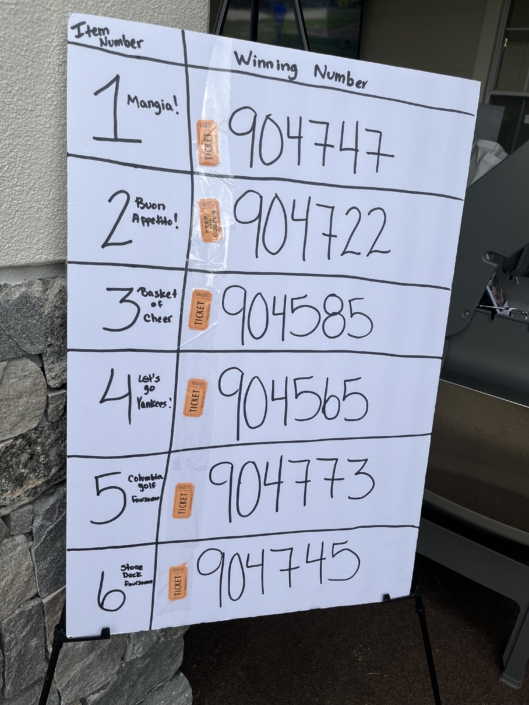 Item Number
Winning Number
1 Mangia!
TICKET
904747
2 Buon Appetito!
904722
3 Basket of Cheer
TICKET
904585
4 Let's go Yankees!
TICKET
904565
5 Columbia golf foursome
TICKET
904773
6 Stone Dock foursome
TICKET
904745